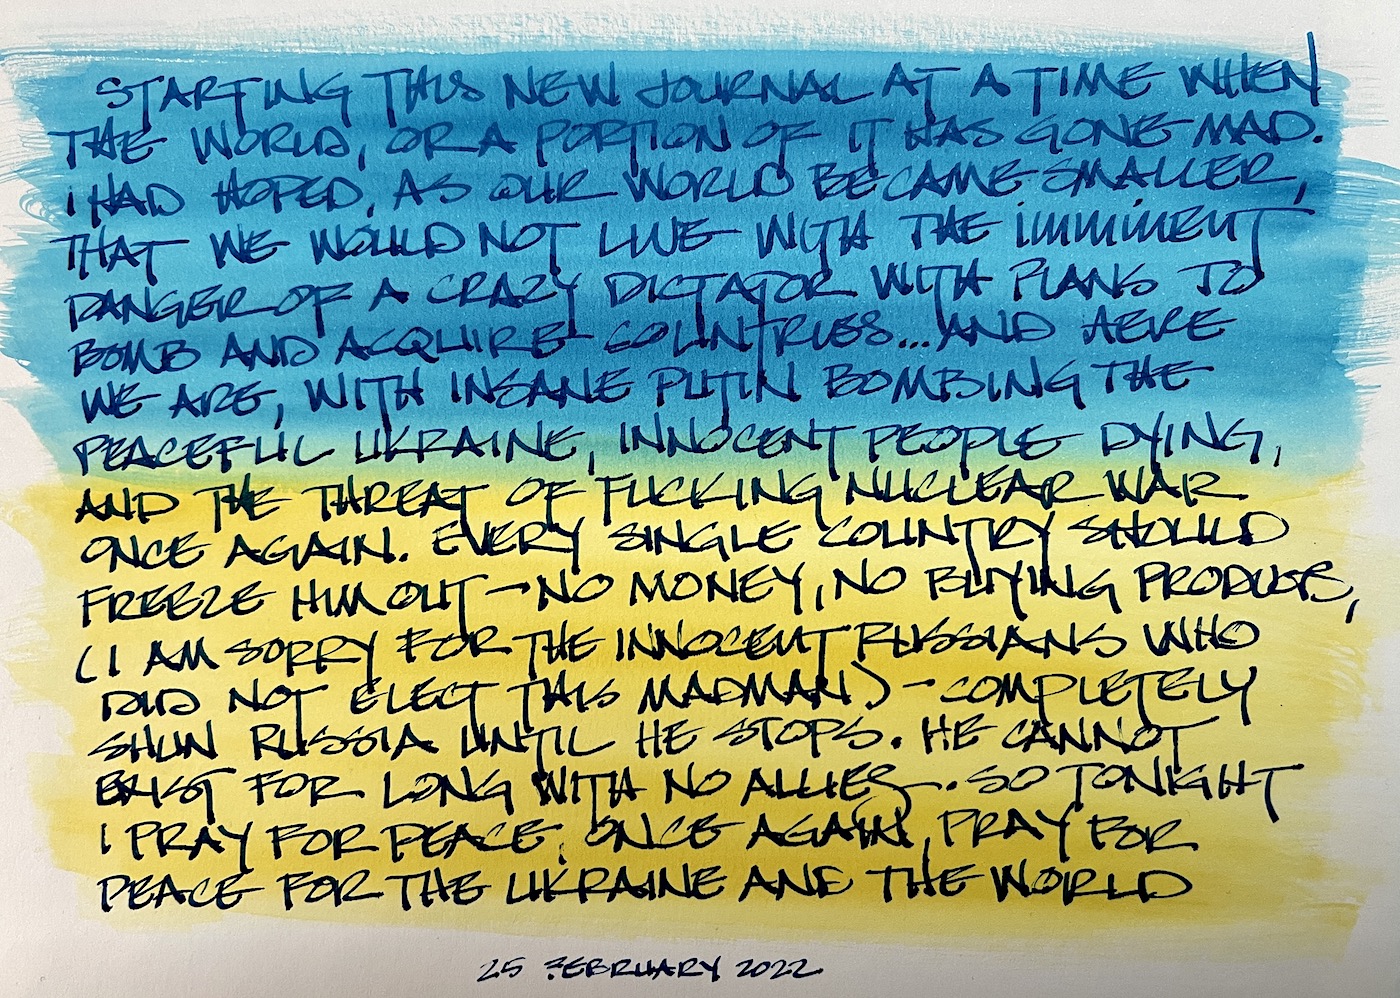 STARTING THIS NEW JOURNAL AT A TIME WHEN
THE WORLD, OR A PORTION OF IT HAS GONE MAD.
i HAD HOPED, AS OUR WORLD BECAME SMALLER,
THAT WE WOULD NOT LIVE WITH THE imminENT
DANGER OF A CRAZY DICTATOR WITH PLANS TO
BOMB AND ACQUIRE COUNTRIES...AND HERE
WE ARE, WITH INSANE PUTIN BOMBING THE
PEACEFUL UKRAINE, INNOCENT PEOPLE DYING,
AND THE THREAT OF FUCKING NUCLEAR WAR
ONCE AGAIN. EVERY SINGLE COUNTRY SHOULD
FREEZE HIM OUT - NO MONEY, NO BUYING PRODUCTS,
(I AM SORRY FOR THE INNOCENT RUSSIANS WHO
DID NOT ELECT THIS MADMAN) - COMPLETELY
SHUN RUSSIA UNTIL HE STOPS. HE CANNOT
EXIST FOR LONG WITH NO ALLIES. SO TONIGHT
I PRAY FOR PEACE. ONCE AGAIN, PRAY FOR
PEACE FOR THE UKRAINE AND THE WORLD
25 FEBRUARY 2022